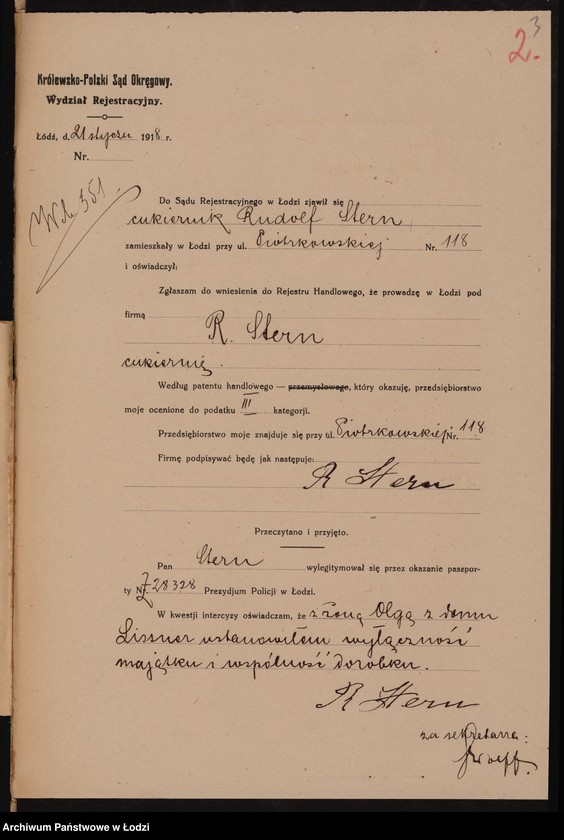 3
2.
Królewsko-Polski Sąd Okręgowy.
Wydział Rejestracyjny.
Łódź, d. 21 stycznia 1918 r.
Nr.
351
Do Sądu Rejestracyjnego w Łodzi zjawił się
cukiernik Rudolf Stern,
zamieszkały w Łodzi przy ul. Piotrkowskiej Nr. 118
i oświadczył:
Zgłaszam do wniesienia do Rejestru Handlowego, że prowadzę w Łodzi pod
firmą
R. Stern
cukiernię.
Według patentu handlowego — przemysłowego, który okazuję, przedsiębiorstwo
moje ocenione do podatku III kategorji.
Przedsiębiorstwo moje znajduje się przy ul. Piotrkowskiej Nr. 118
Firmę podpisywać będę jak następuje:
R Stern
Przeczytano i przyjęto.
Pan Stern wylegitymował się przez okazanie paszpor-
ty Nr. 28328 Prezydjum Policji w Łodzi.
W kwestji intercyzy oświadczam, że z żoną Olgą z domu
Lissner ustanowiłem wyłączność
majątku i wspólność dorobku.
R Stern
za sekretarza:
Archiwum Państwowe w Łodzi